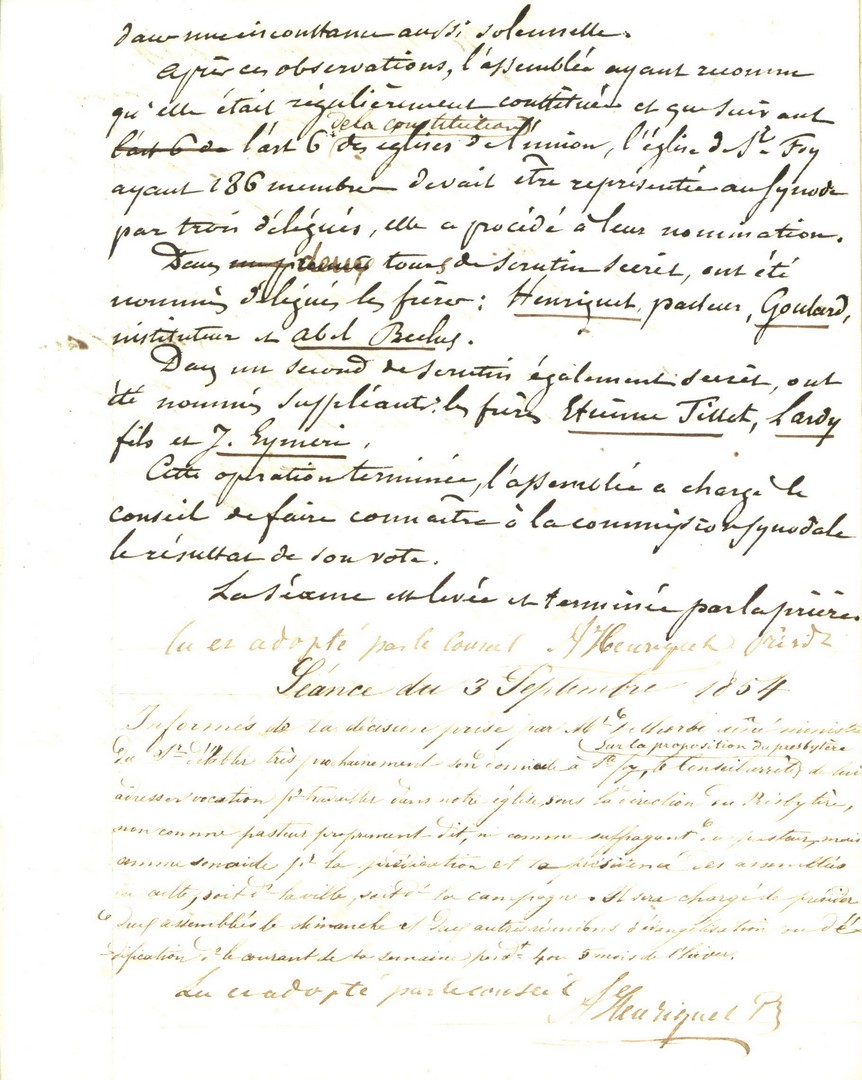 dans une circonstance aussi solennelle.
Après ces observations, l'assemblée ayant reconnu
qu'elle était régulièrement constituée et que suivant
de la constitution
l'art 6 de l'art 6 des églises de l'union, l'église de Ste Foy
ayant 186 membres devait être représentée au Synode
par trois délégués, elle a procédé à leur nomination.
Dans un premier deux tours de scrutin secret, ont été
nommés délégués les frères : Henriquet, pasteur, Goulard,
instituteur et Abel Reclus.
Dans un second de scrutin également secret, ont
été nommés suppléants : les frères Etienne Tillet, Lardy
fils et J. Eymeri.
Cette opération terminée, l'assemblée a chargé le
conseil de faire connaître à la commission synodale
le résultat de son vote.
La Séance est levée et terminée par la prière.
lu et adopté par le Conseil A Henriquet Présdt
Séance du 3 Septembre 1854
Informés de la décision prise par Mr ministre
sur la proposition du presbytère
du St d'établir très prochainement son domicile à Ste Foy, le Conseil arrête de lui
adresser vocation pr travailler dans notre église, sous la direction du Presbytère,
non comme pasteur proprement dit, ni comme suffragant du pasteur, mais
comme son aide pr la prédication et la présidence des assemblées
de culte, soit ds la ville, soit ds la campagne. Il sera chargé de présider
deux assemblées le dimanche et deux autres réunions d'évangélisation ou d'é-
dification ds le courant de la semaine pendt 4 ou 5 mois de l'hiver.
Lu et adopté par le conseil A Henriquet Pt